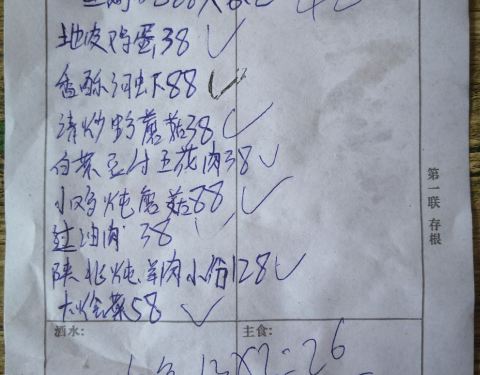 地皮鸡蛋38
香酥河虾88
清炒野蘑菇38
白菜豆付五花肉38
小鸡炖蘑菇88
过油肉 38
陕北炖羊肉小份128
大烩菜58
第一联 存根
酒水:
主食:
13X2=26